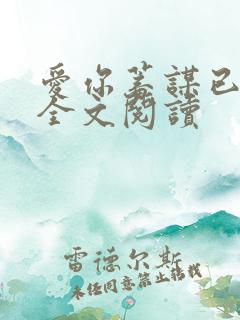 愛你蓄謀已
全文閱讀
雷德尔斯
未经同意禁止转载